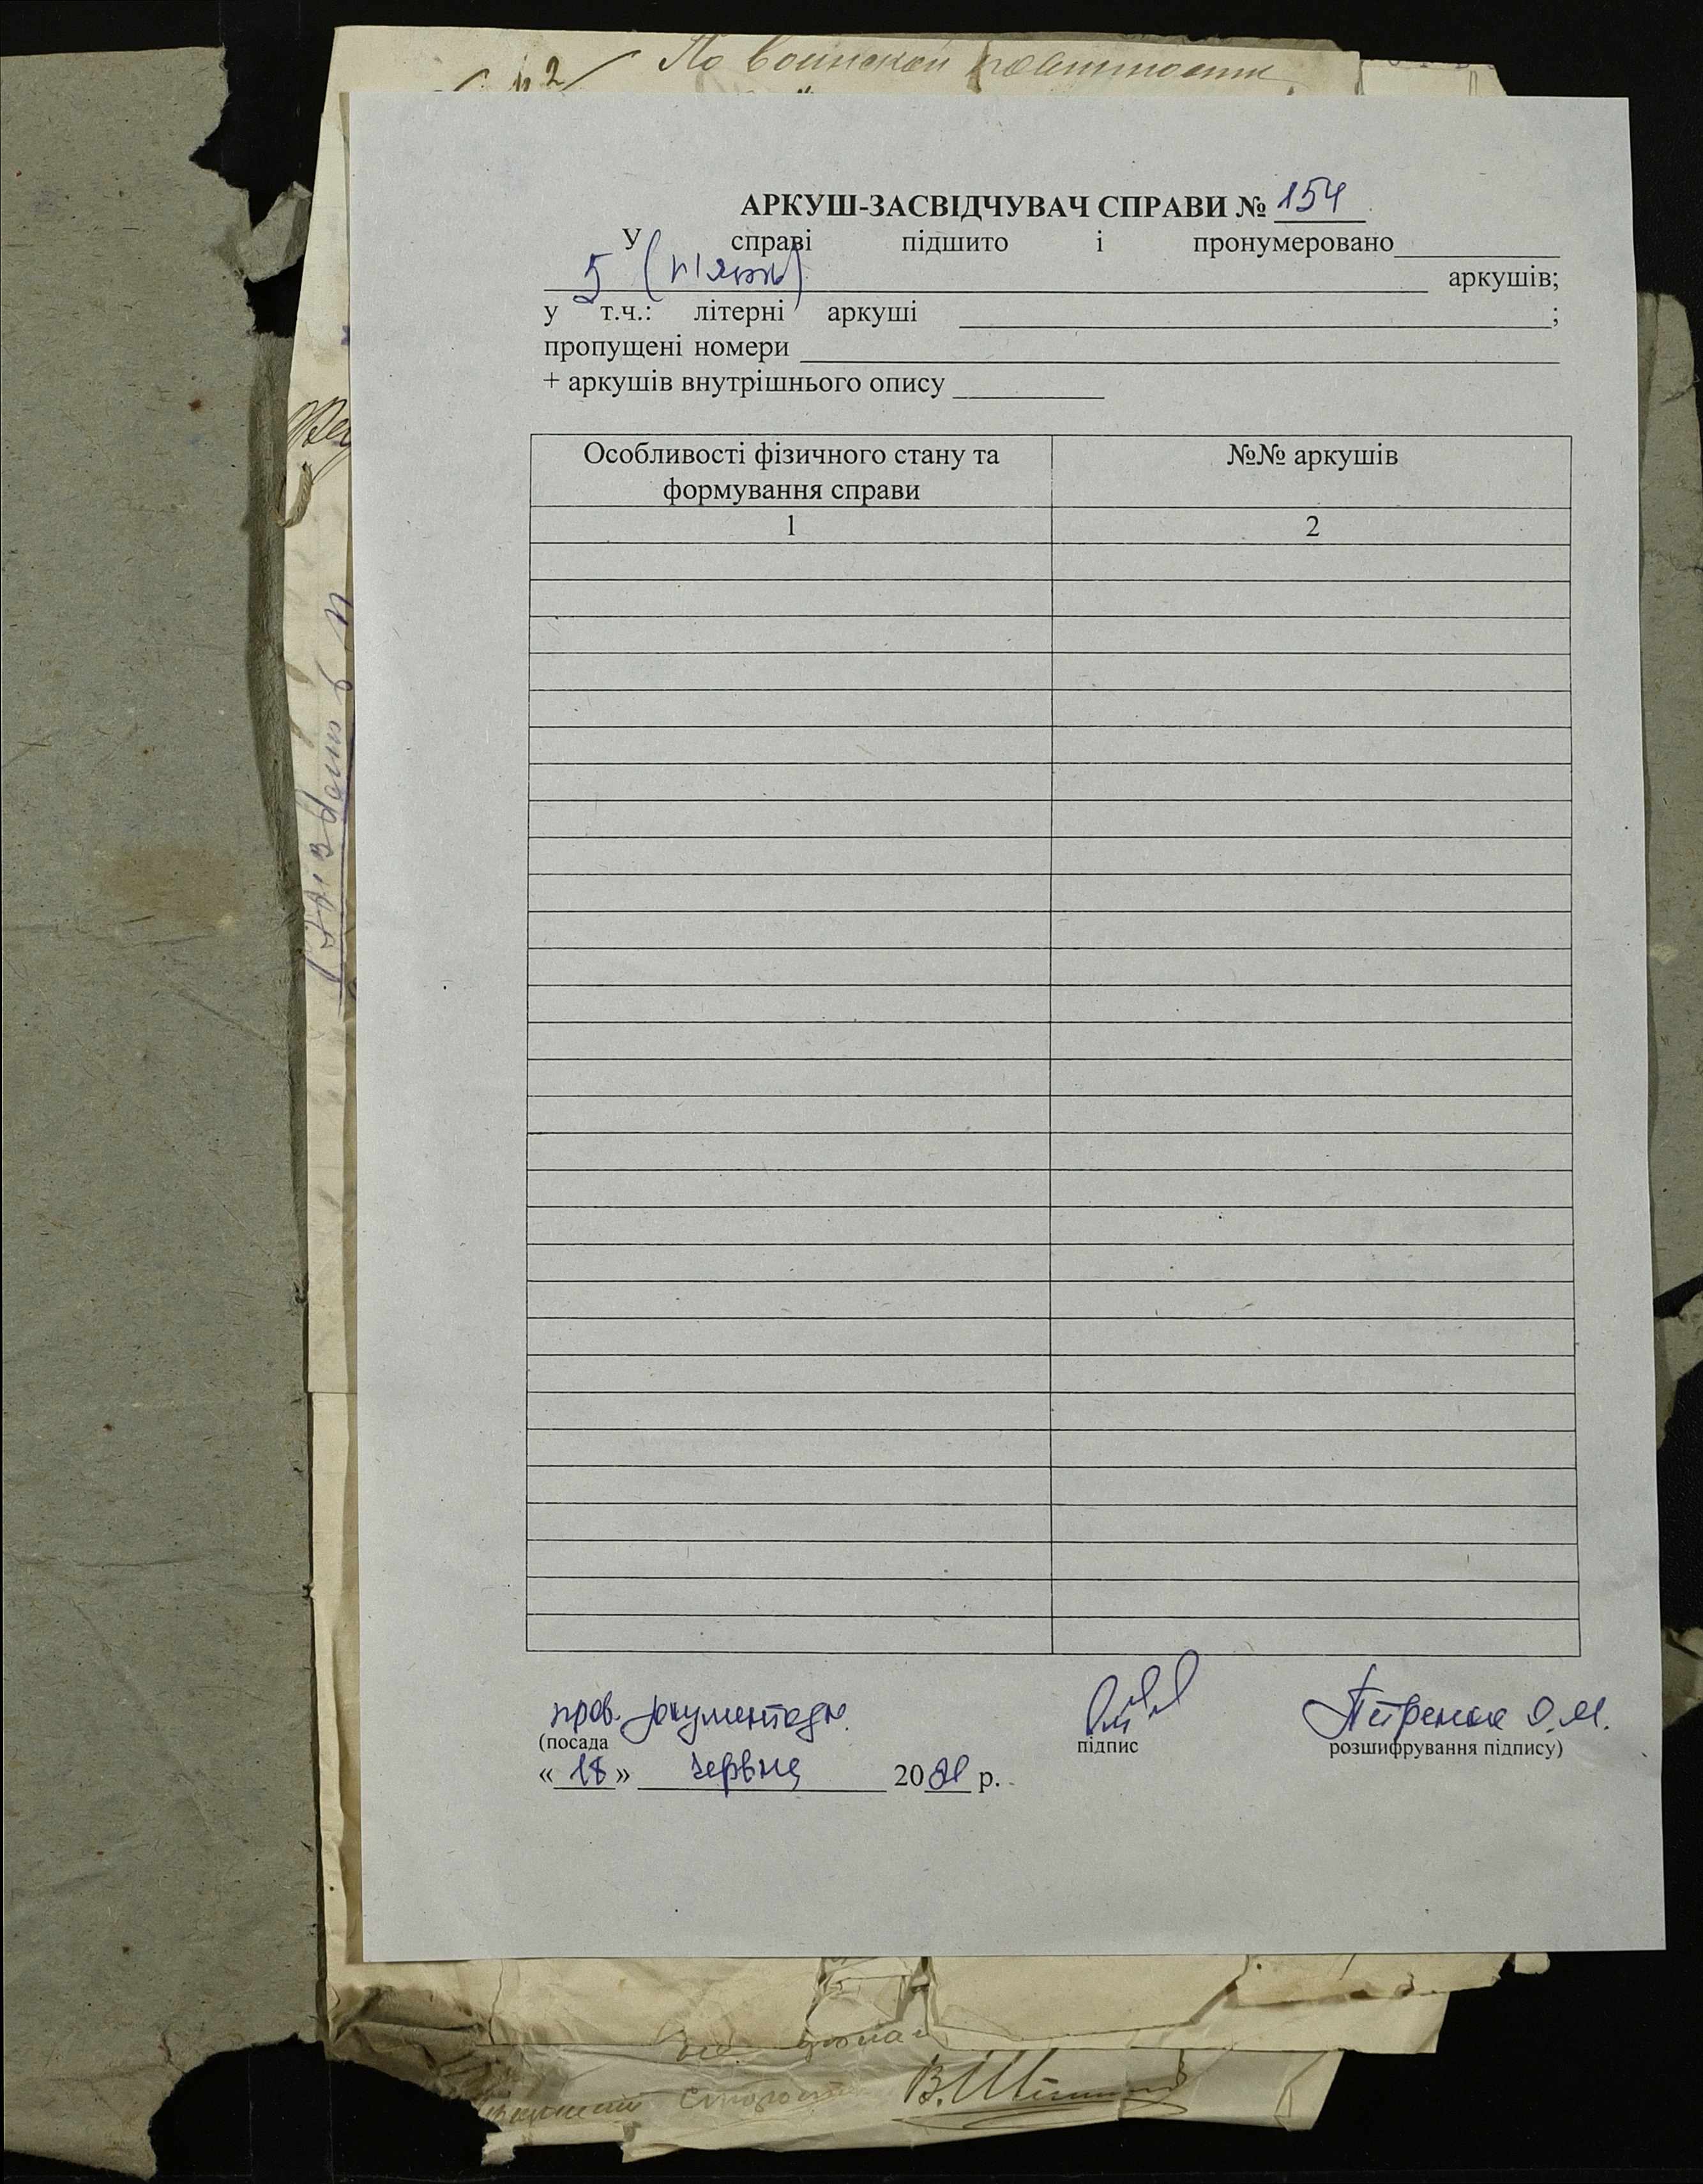 По воинской повинности
АРКУШ-ЗАСВІДЧУВАЧ СПРАВИ № 154
У справі підшито і пронумеровано
5 (п'ять) аркушів;
у т.ч.: літерні аркуші ;
пропущені номери
+ аркушів внутрішнього опису
Особливості фізичного стану та формування справи
№№ аркушів
1
2
пров. документозн. Петренко О.М.
(посада підпис розшифрування підпису)
«18» червня 2021 р.